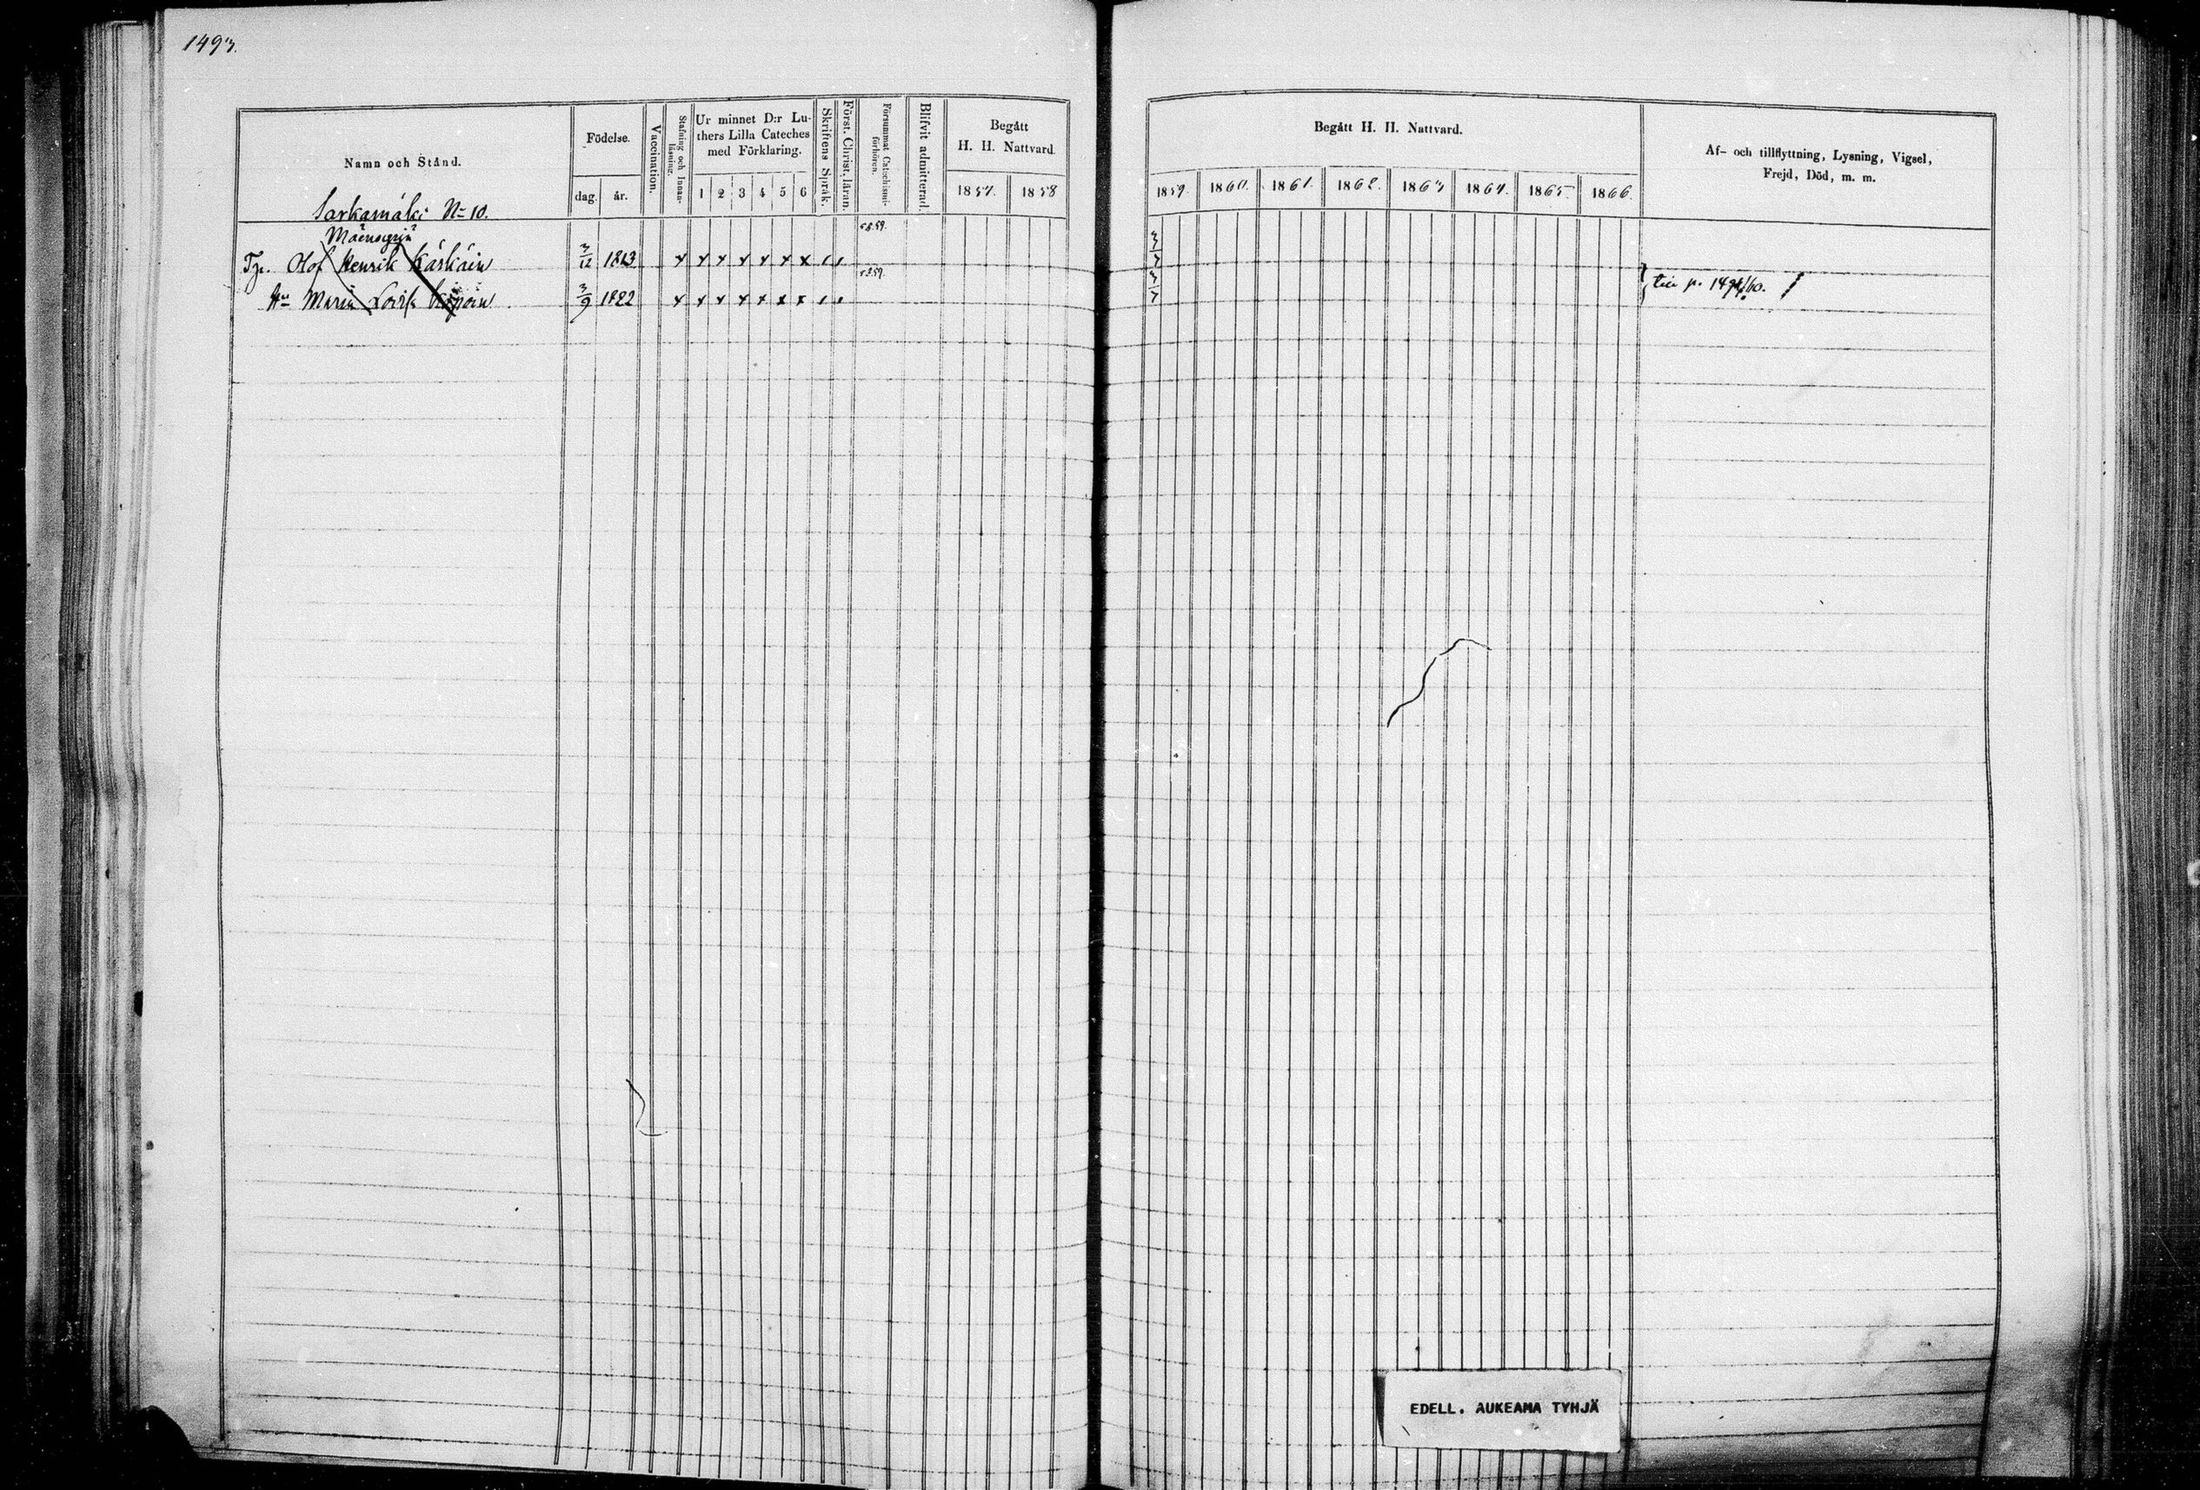 1493.
Namn och Stånd.
Födelse.
dag.
år.
Vaccination.
Stafning och Innanläsning.
Ur minnet D:r Lu-
thers Lilla Cateches
med Förklaring.
1 2 3 4 5 6
Skriftens Språk.
Först. Christ. läran.
Försummat Catechismi-
förhören.
Blifvit admitterad.
Begått
H. H. Nattvard.
1857. 1858
Begått H. H. Nattvard.
1859. 1860. 1861. 1862. 1863 1864. 1865 1866.
Af- och tillflyttning, Lysning, Vigsel,
Frejd, Död, m. m.
Sarkamäki No 10.
Olof Henrik Kärkäin 3/12 1813 x x x x x x x
58.59.
3/7
Hu Maria Lovisa 3/9 1822 x x x x x x x
3/7
till p. 1494/60.
EDELL. AUKEAMA TYHJÄ